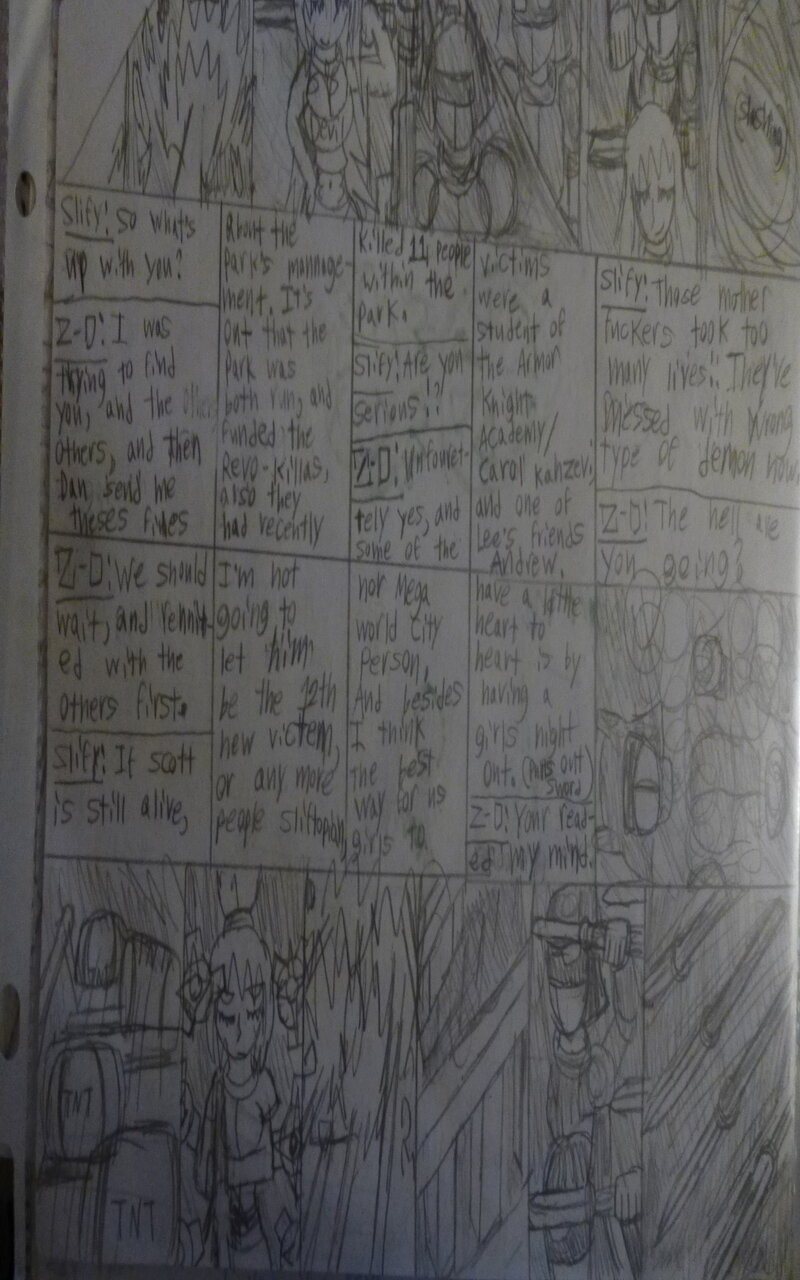 Devil
Slashing
Slify: So what's
up with you?
Z-D: I was
trying to find
you, and the other
others, and then
Dan send me
theses files
About the
park's mannage-
ment. It's
out that the
park was
both run, and
funded the
Revo-Killas,
also they
had recently
killed 11 people
within the
park.
Slify: Are you
serious!?
Z-D: Unfouret-
tely yes, and
some of the
victims
were a
student of
the Armor
Knight
Academy/
Carol Kahzevi,
and one of
Lee's friends
Andrew.
Slify: Those mother
fuckers took too
many lives!! They've
messed with wrong
type of demon now.
Z-D: The hell are
you going?
Z-D: We should
wait, and rennit-
ed with the
others first.
Slify: If scott
is still alive,
I'm not
going to
let him
be the 12th
new victem,
or any more
people sliftopian,
nor Mega
world City
Person,
And besides
I think
the best
way for us
girls to
have a little
heart to
heart is by
having a
girls night
out. (Pulls out
sword)
Z-D: Your read-
ed my mind.
TNT
TNT
TNT